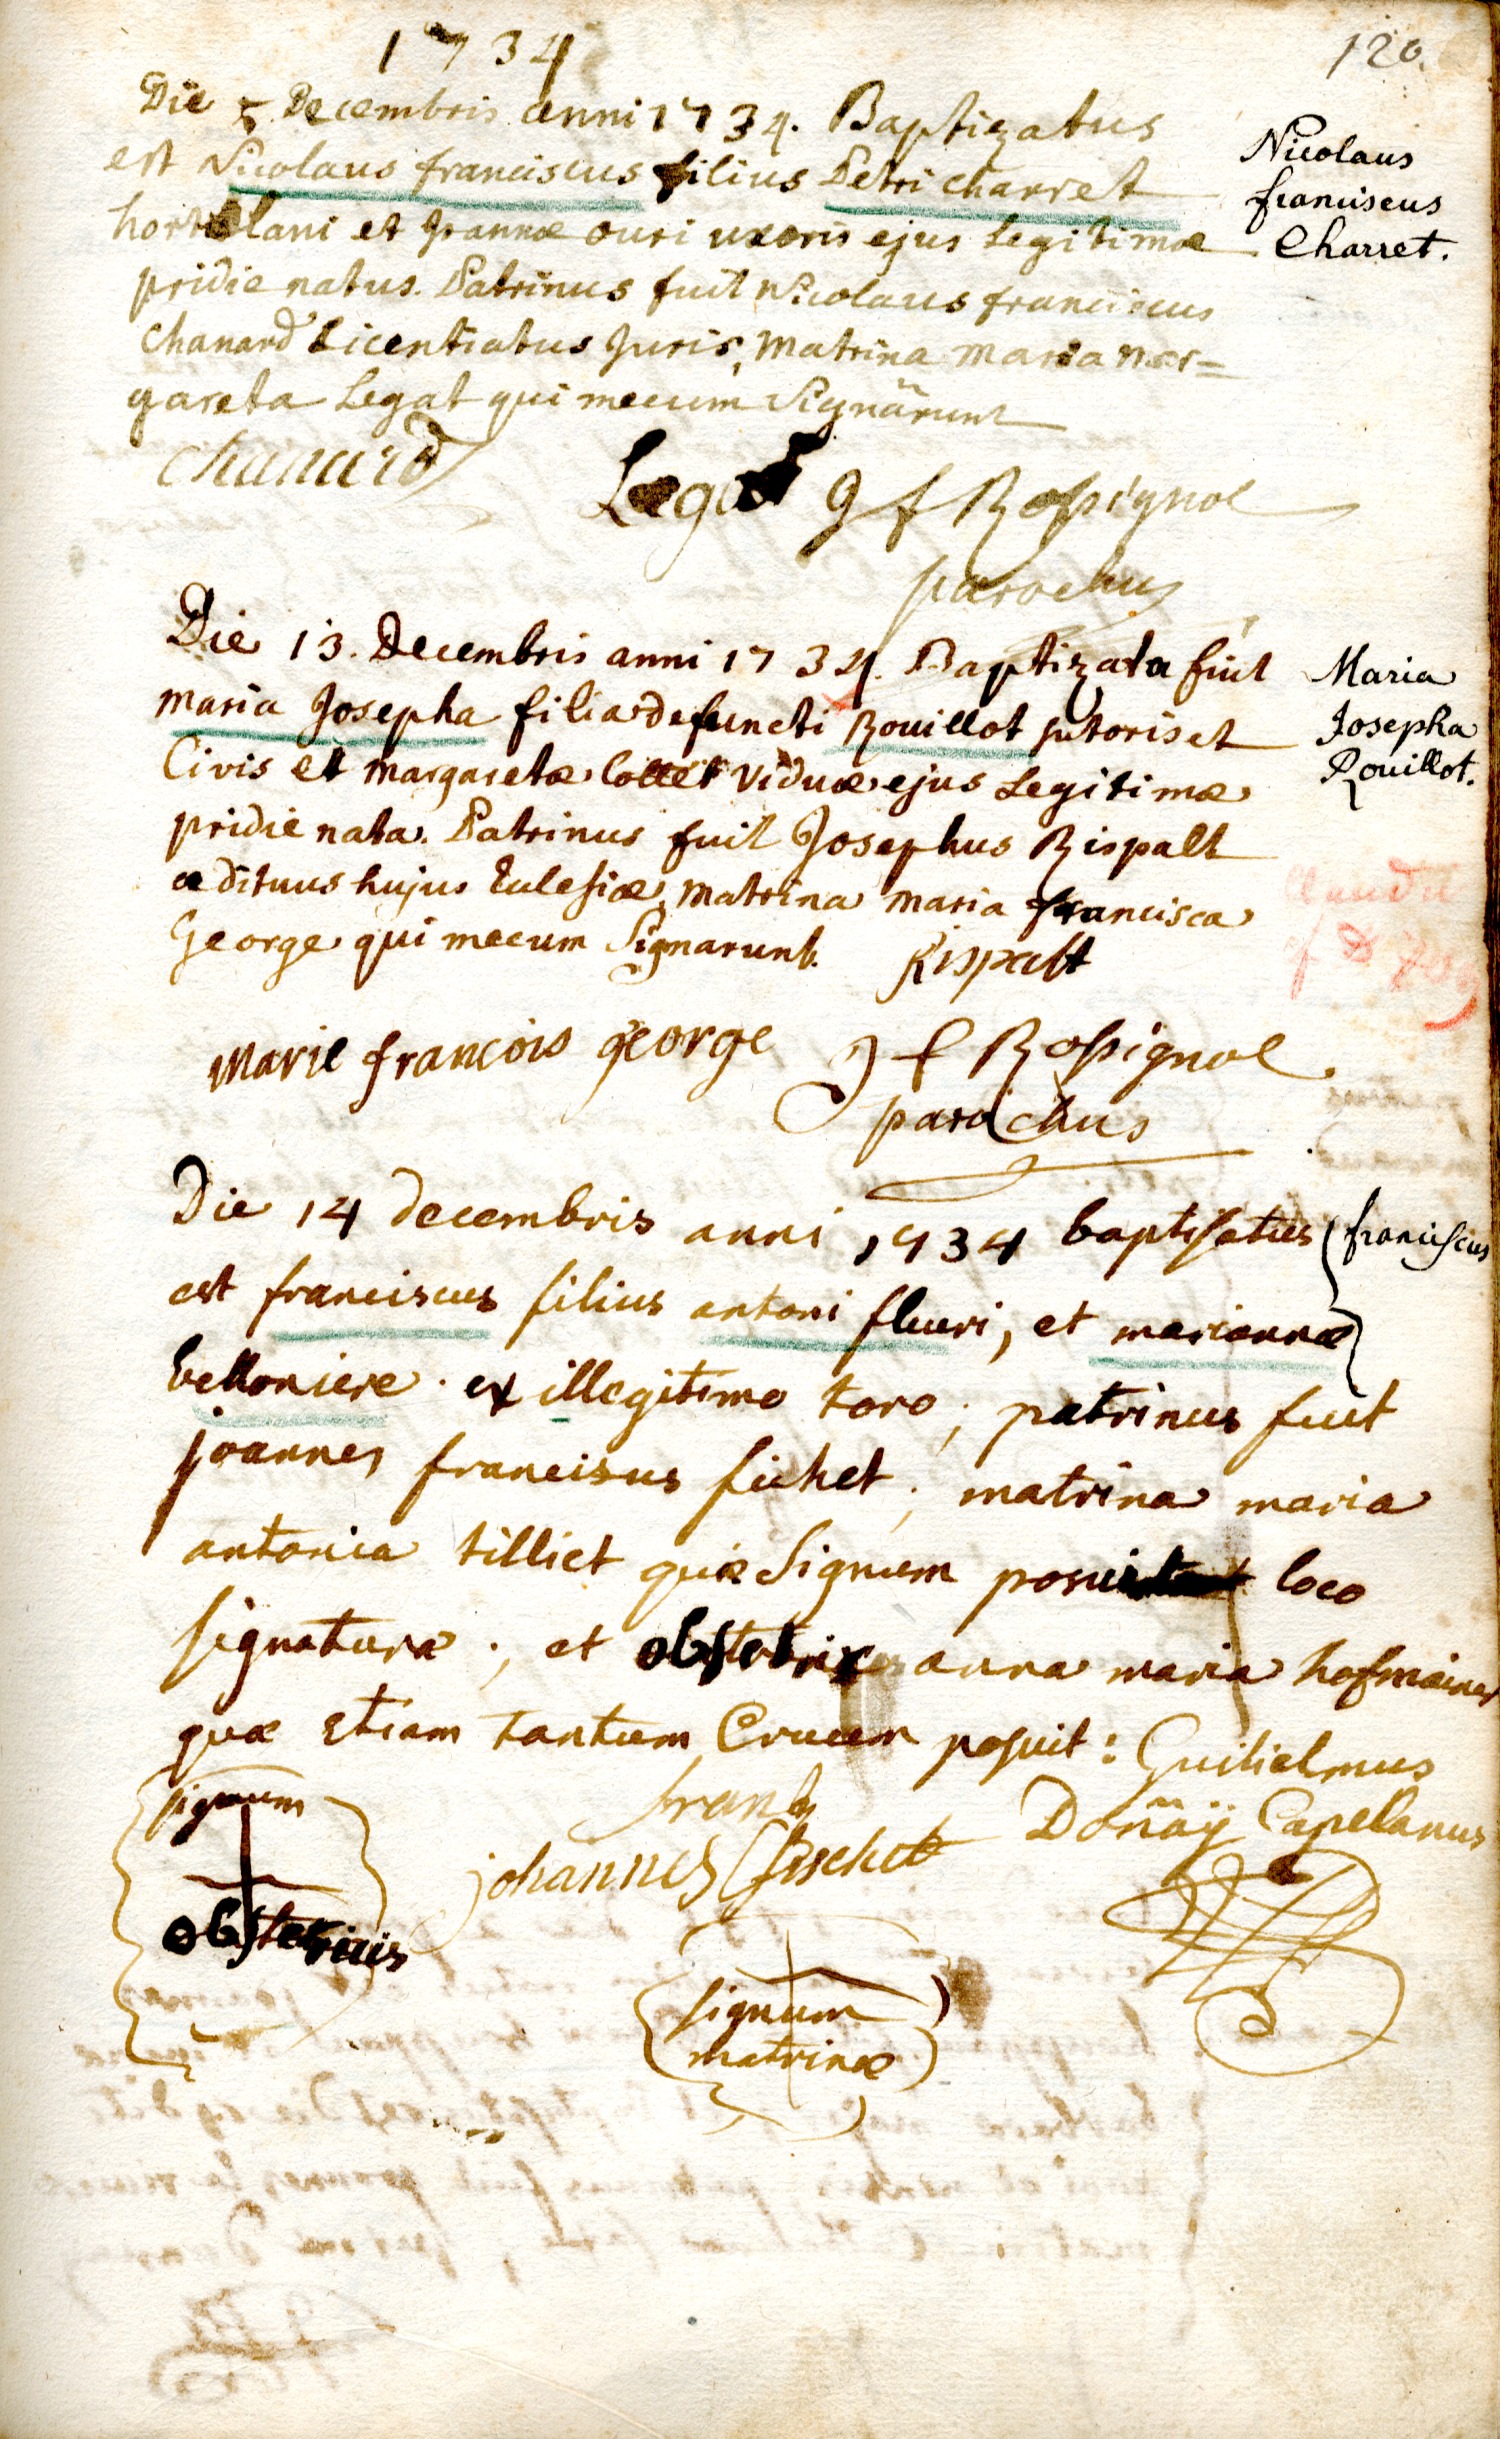 1734
120.
Die 5 Decembris anni 1734. Baptizatus
est Nicolaus franciscus filius Petri charret
hortulani et Joannæ ouri uxoris ejus Legitimæ
pridie natus. Patrinus fuit Nicolaus franciscus
chanard Licentiatus Juris, Matrina maria mar=
gareta Legat qui mecum Signârunt
Nicolaus
franciscus
Charret.
chanard
Legat J f Rossignol
parochus
Die 13. Decembris anni 1734. Baptizata fuit
maria Josepha filia defuncti Rouillot sutoris et
Civis et margaretæ Collet viduæ ejus Legitimæ
pridie nata. Patrinus fuit Josephus Rispalt
ædituus hujus Eclesiæ, matrina maria francisca
George qui mecum Signarunt.
Maria
Josepha
Rouillot.
Claudii
Rispalt
marie francois george
J f Rossignol
parochus
Die 14 decembris anni 1734 baptisatus
est franciscus filius antoni fleuri, et mariannæ
belloniere. ex illegitimo toro; patrinus fuit
joannes francisus fichet; matrina maria
antonia tilliet quæ Signum posuit loco
signaturæ; et obstetrix anna maria hofmainer
quæ etiam tantum Crucem posuit: Guilielmus
Donaÿ Capelanus
franciscus
signum
obstetricis
frantz
johannes fischet
signum
matrinæ